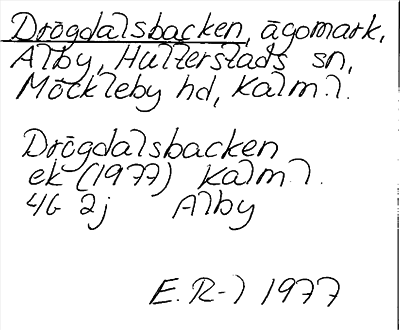 Drögdalsbacken, ägomark,
Alby, Hulterstads sn,
Möckleby hd, Kalm.l.
Drögdalsbacken
ek (1977) Kalm.l.
4G 2j Alby
E. R-l 1977